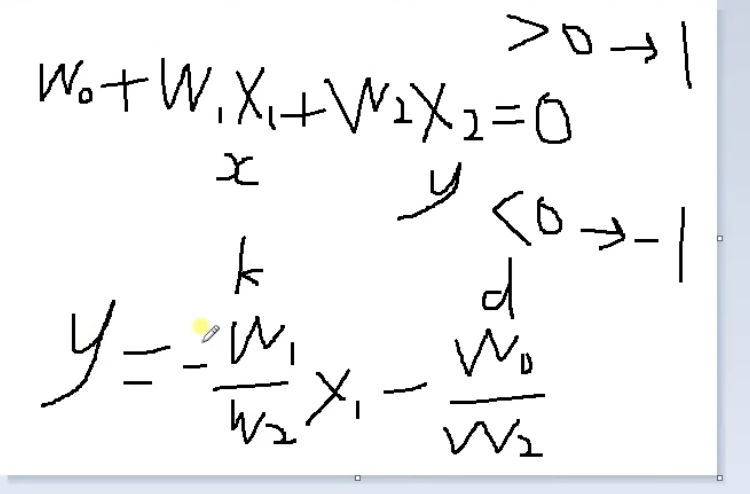 >0→1
W₀+W₁X₁+W₂X₂=0
x y
<0→-1
k d
y=-W₁/W₂ X₁-W₀/W₂